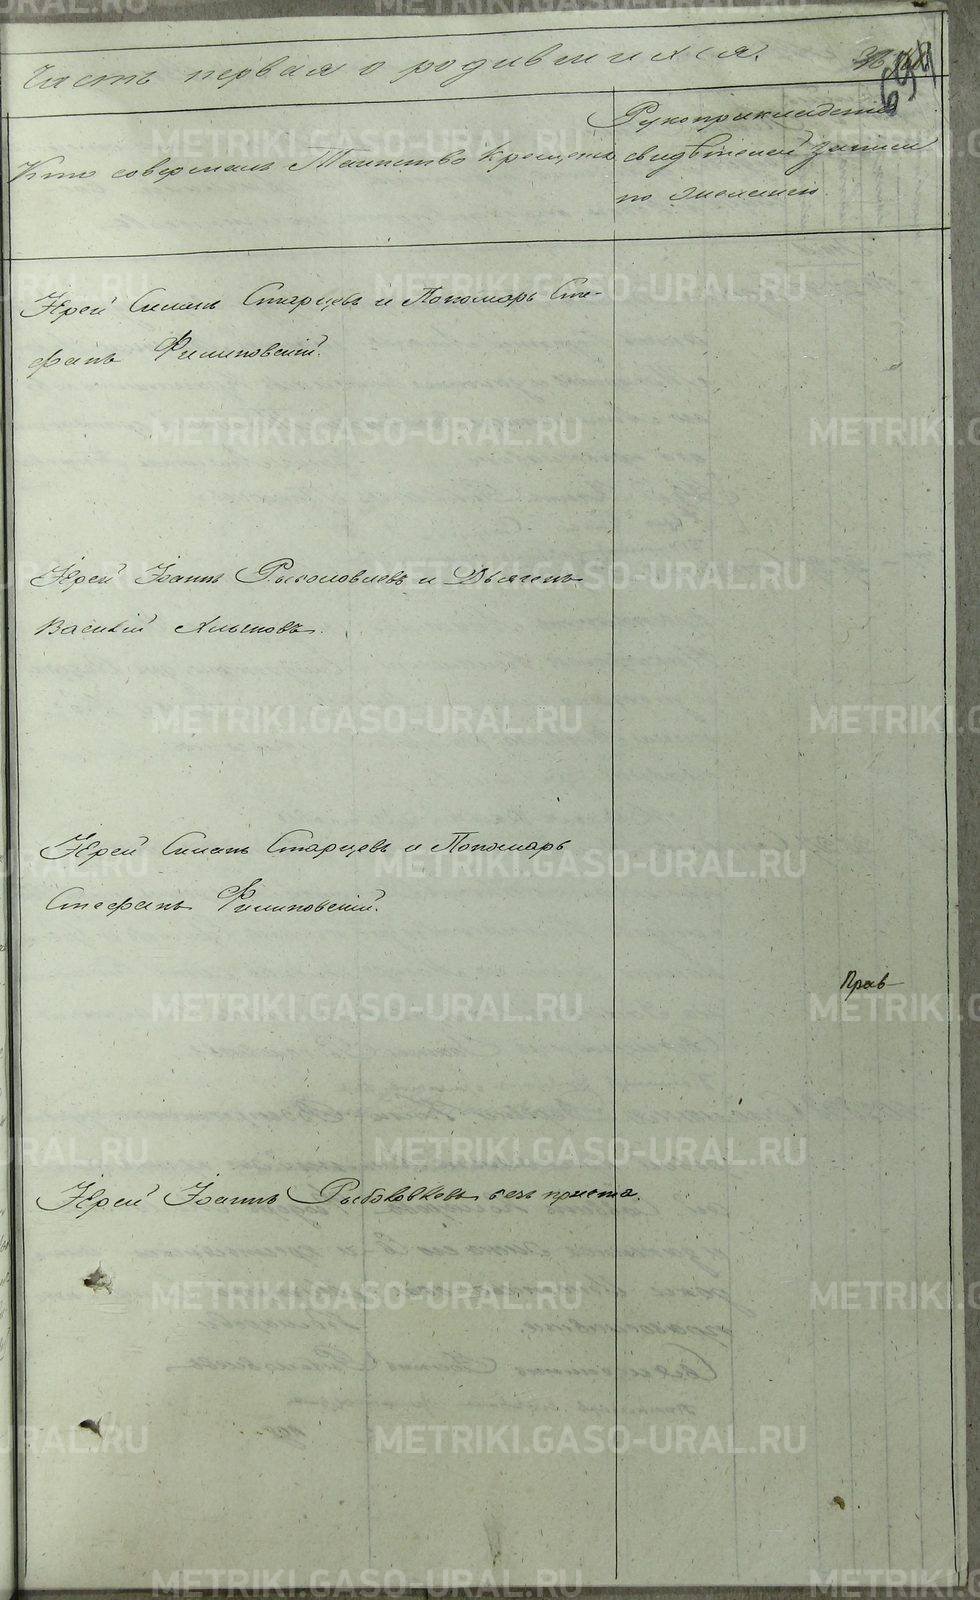 Часть первая о родившихся.
694
Кто совершалъ Таинство крещенія
Рукоприкладство
свидѣтелей записи
по желанію
Іерей Симонъ Старцевъ и Пономарь Сте-
фанъ Филиповскій.
Іерей Іоаннъ Рыболовлевъ и Дьячекъ
Василій Хлыновъ.
Іерей Симонъ Старцевъ и Пономарь
Стефанъ Филиповскій.
Прав
Іерей Іоаннъ Рыболовлевъ безъ причта.
METRIKI.GASO-URAL.RU